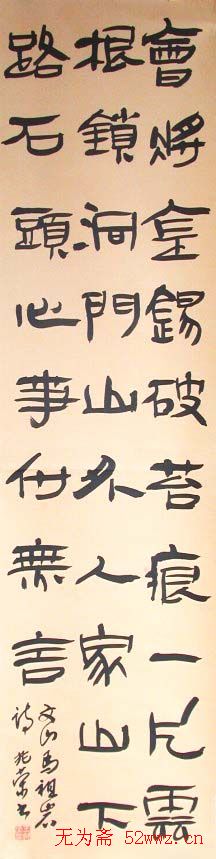 會將錫破苔痕一片雲
根鎖洞門山外人家山下
路石頭心事付無言
文山馬祖岩
詩 書
无为斋 52wwz.cn